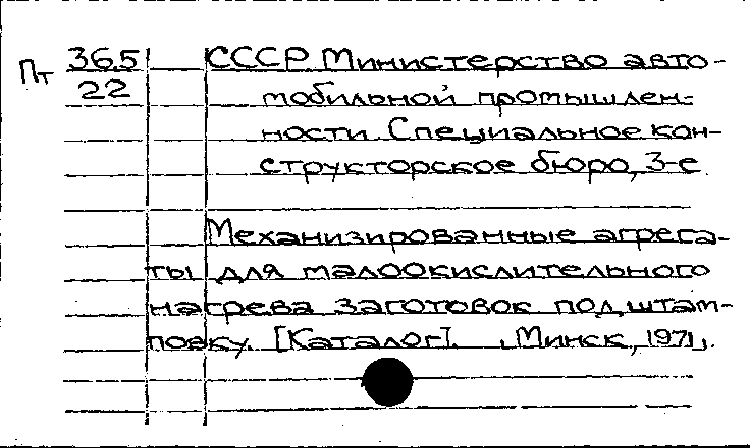 Пт 365 СССР Министерство авто-
22 мобильной промышлен-
ности. Специальное кон-
структорское бюро, 3-е
Механизированные агрега-
ты для малоокислительного
нагрева заготовок под штам-
повку. [Каталог]. Минск, 1971.